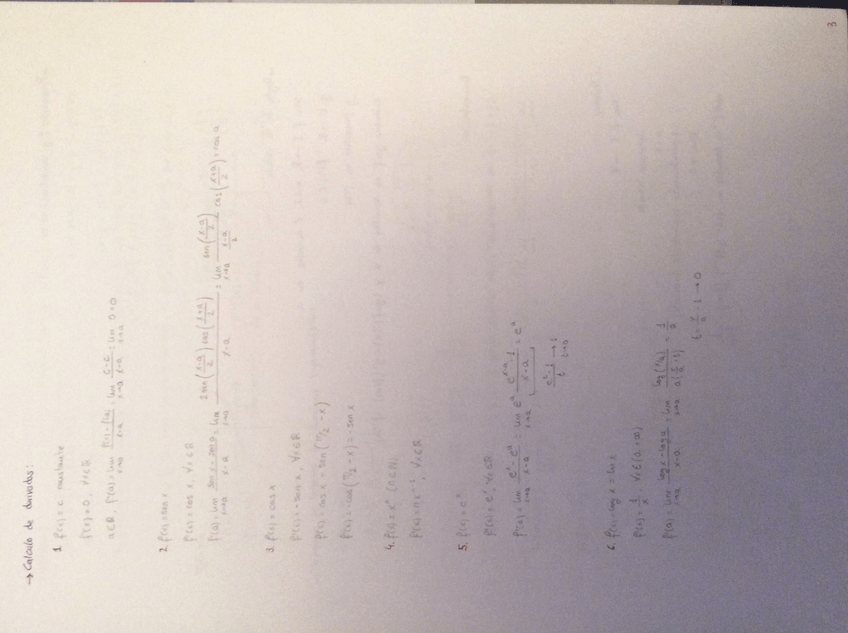 → Calculo de derivadas:
1. f(x) = c constante
f'(x) = 0, ∀x∈ℝ
a∈ℝ, f'(a) = lim_{x→a} (f(x) - f(a))/(x-a) = lim_{x→a} (c-c)/(x-a) = lim_{x→a} 0 = 0
2. f(x) = sen x
f'(x) = cos x, ∀x∈ℝ
f'(a) = lim_{x→a} (sen x - sen a)/(x-a) = lim_{x→a} (2 sen((x-a)/2) cos((x+a)/2))/(x-a) = lim_{x→a} (sen((x-a)/2))/((x-a)/2) cos((x+a)/2) = cos a
3. f(x) = cos x
f'(x) = -sen x, ∀x∈ℝ
f(x) = cos x = sen(π/2 - x)
f'(x) = -cos(π/2 - x) = -sen x
4. f(x) = xⁿ (n∈ℕ)
f'(x) = n xⁿ⁻¹, ∀x∈ℝ
5. f(x) = eˣ
f'(x) = eˣ ∀x∈ℝ
f'(a) = lim_{x→a} (eˣ - eᵃ)/(x-a) = lim_{x→a} eᵃ (eˣ⁻ᵃ - 1)/(x-a) = eᵃ
(eᵗ - 1)/t → 1
t→0
6. f(x) = log x = ln x
f'(x) = 1/x, ∀x∈(0, +∞)
f'(a) = lim_{x→a} (log x - log a)/(x-a) = lim_{x→a} (log(x/a))/(a(x/a - 1)) = 1/a
t = x/a - 1 → 0
3